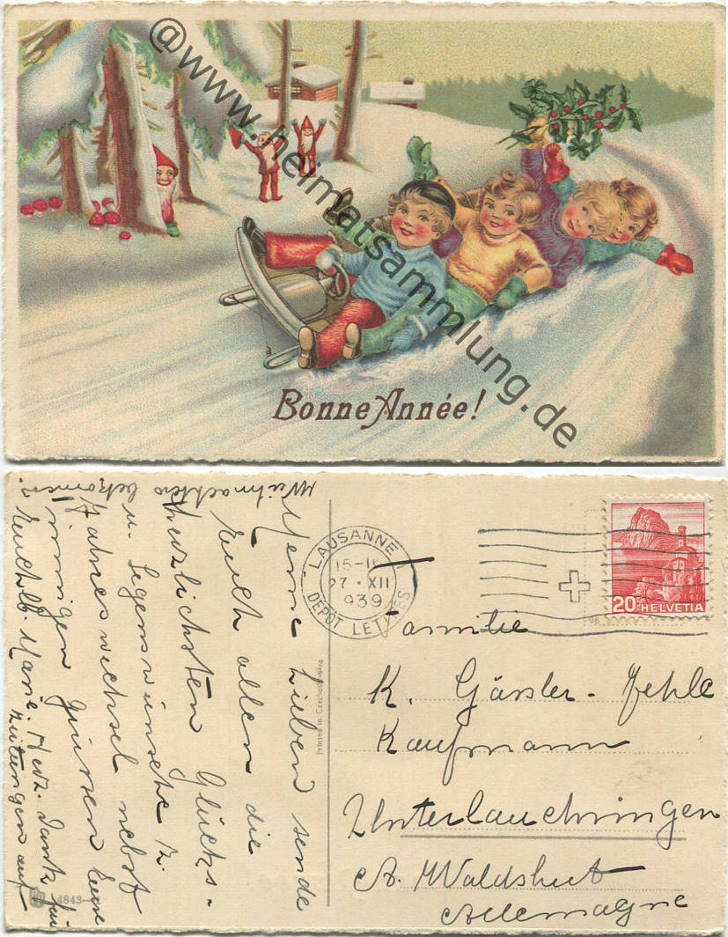 @www.heimatsammlung.de
Bonne Année!
Meine Lieben! sende
Euch allen die
herzlichsten Glücks-
u. Segenswünsche z.
Jahreswechsel nebst
innigen Grüssen Eure
Euchlb. Marie. Herz. Dank für
Zeitungen auf
Weihnachten bekommen.
Printed in Czechoslovakia
4843
LAUSANNE
27·XII
939
DÉPÔT LETTRES
20 HELVETIA
Familie
K. Gässler-Jehle
Kaufmann
Unterlauchringen
A. Waldshut
Allemagne